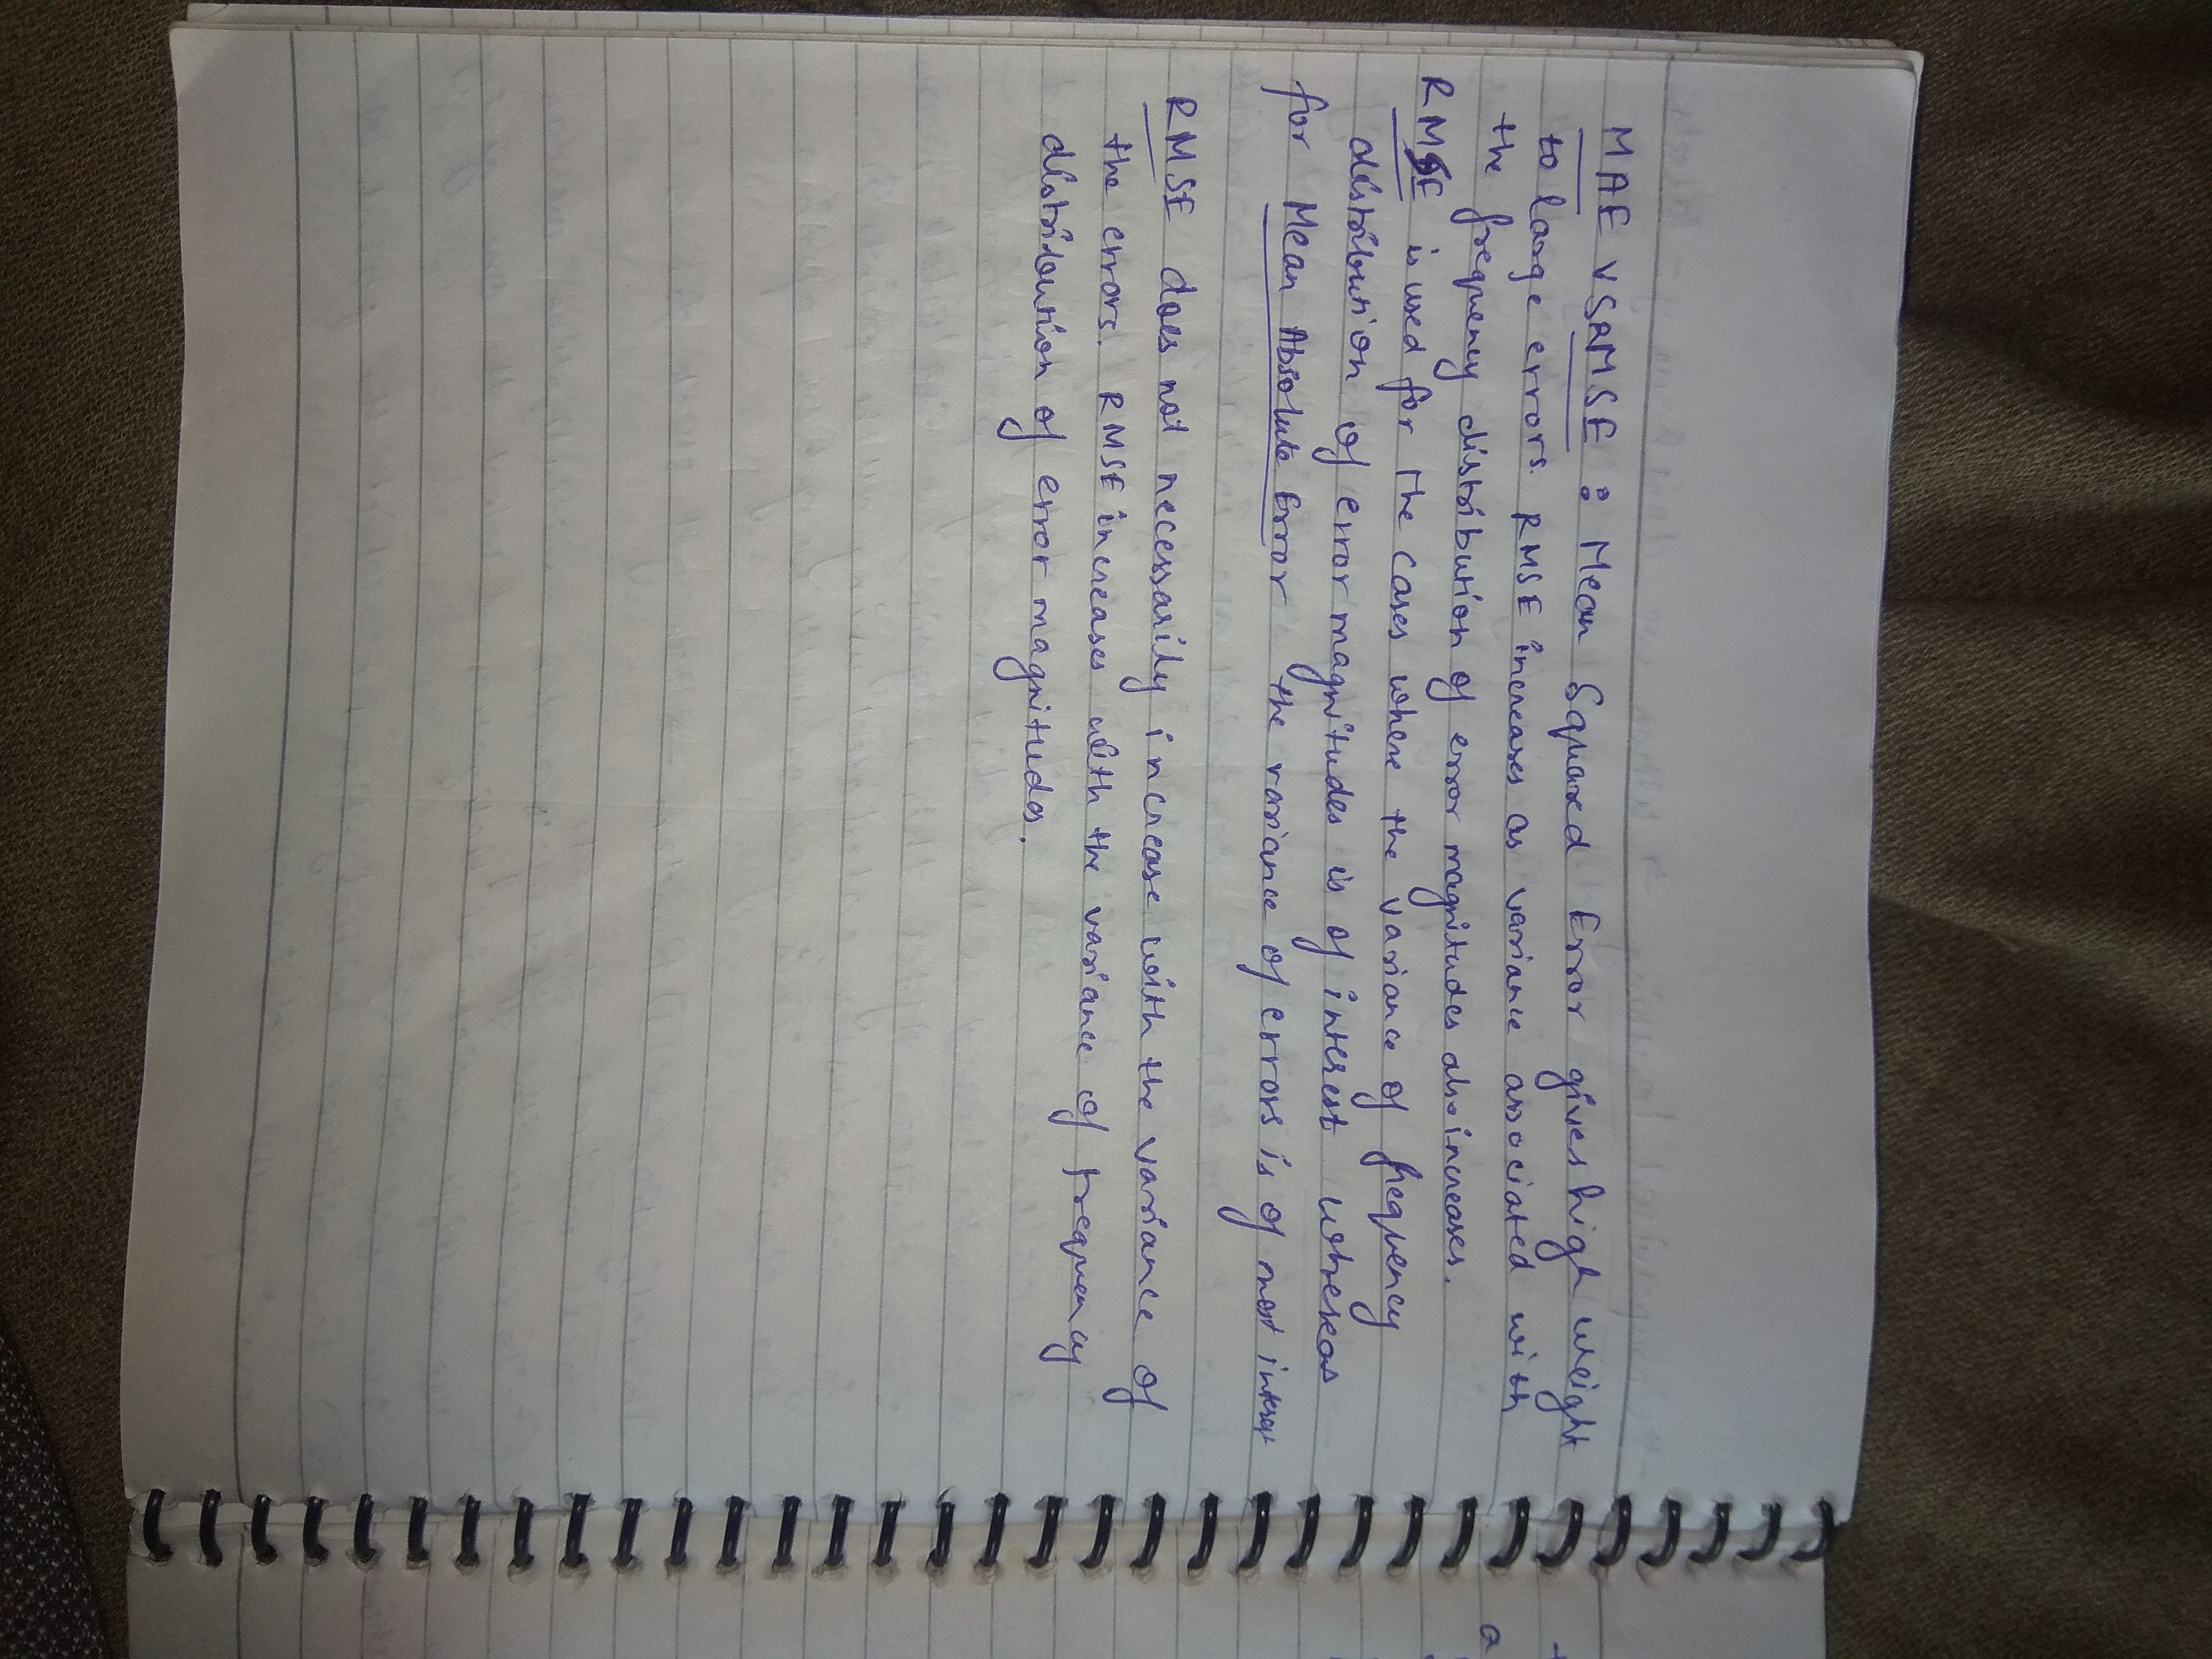 MAE VS RMSE : Mean Squared Error gives high weight
to large errors. RMSE increases as variance associated with
the frequency distribution of error magnitudes also increases.
RMSE is used for the cases where the variance of frequency
distribution of error magnitudes is of interest whereas
for Mean Absolute Error the variance of errors is of most interest
RMSE does not necessarily increase with the variance of
the errors. RMSE increases with the variance of frequency
distribution of error magnitudes.
a